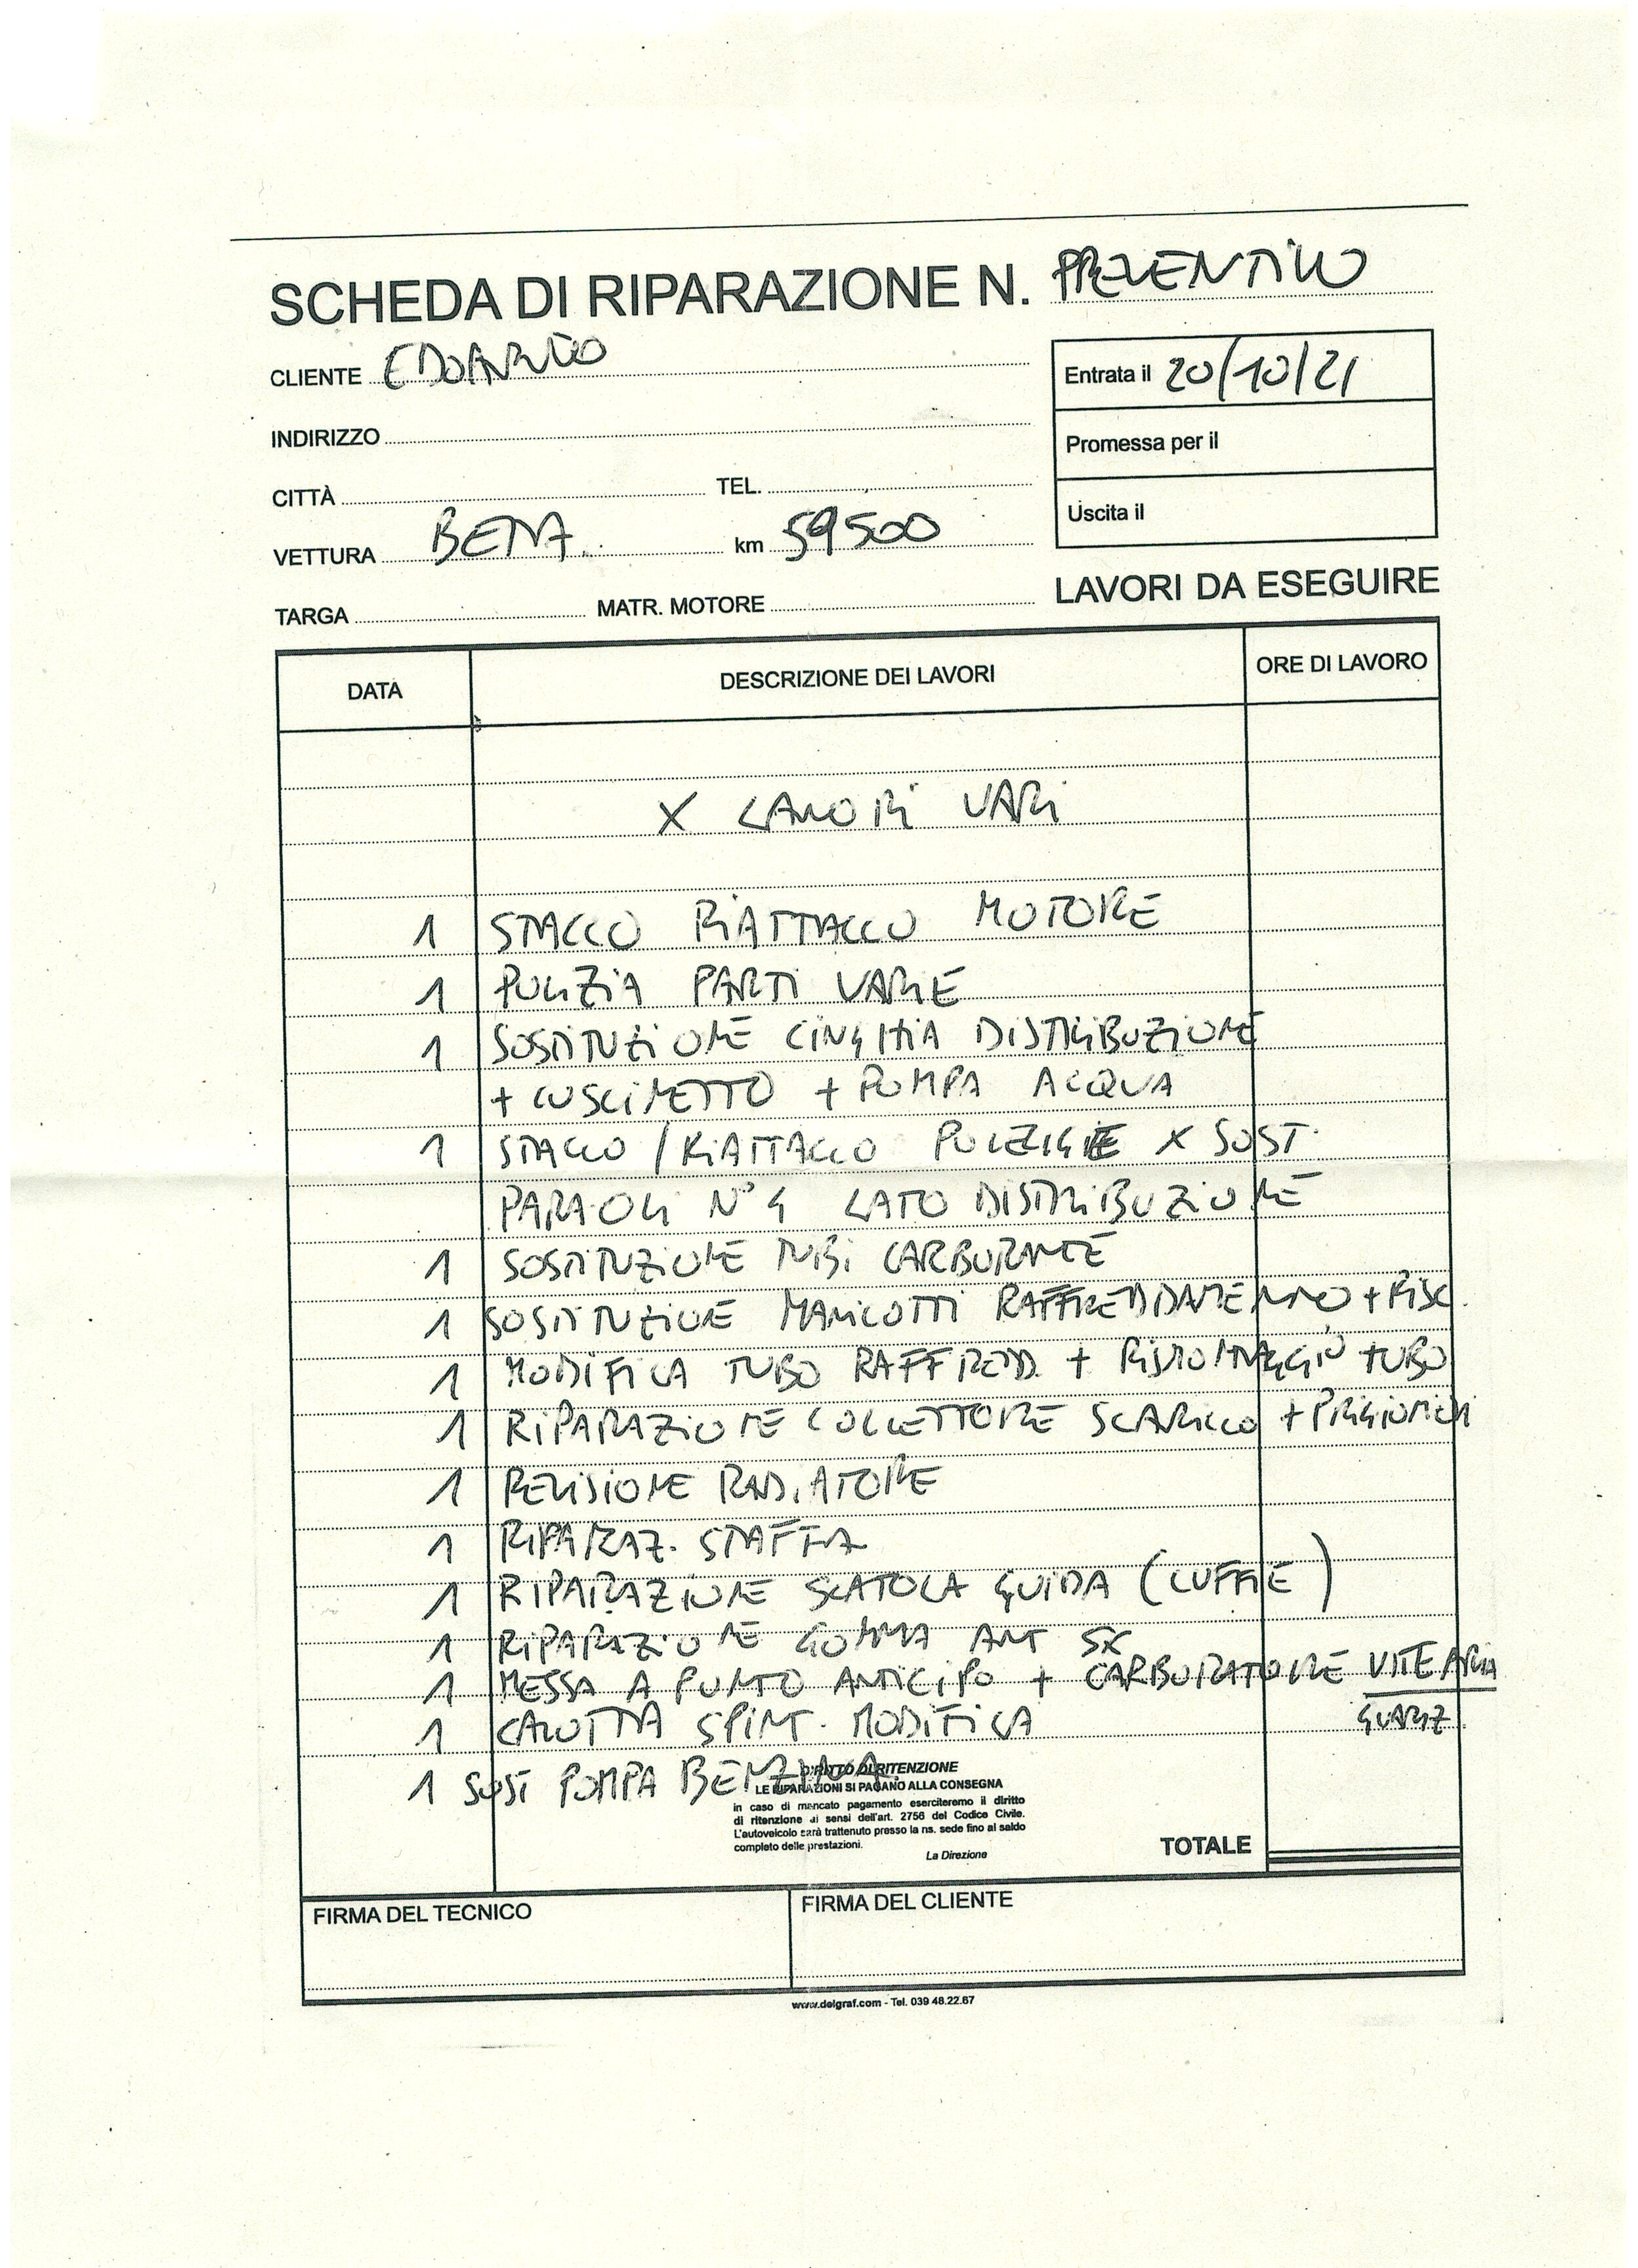 SCHEDA DI RIPARAZIONE N. PREVENTIVO
CLIENTE EDOARDO
Entrata il 20/10/21
INDIRIZZO
Promessa per il
CITTÀ TEL.
Uscita il
VETTURA BETA km 59500
TARGA MATR. MOTORE
LAVORI DA ESEGUIRE
DATA DESCRIZIONE DEI LAVORI ORE DI LAVORO
X LAVORI VARI
1 STACCO RIATTACCO MOTORE
1 PULIZIA PARTI VARIE
1 SOSTITUZIONE CINGHIA DISTRIBUZIONE
+ CUSCINETTO + POMPA ACQUA
1 STACCO / RIATTACCO PULEGGIE X SOST.
PARAOLI N° 4 LATO DISTRIBUZIONE
1 SOSTITUZIONE TUBI CARBURANTE
1 SOSTITUZIONE MANICOTTI RAFFREDDAMENTO + RISC.
1 MODIFICA TUBO RAFFREDD. + RIMONTAGGIO TUBO
1 RIPARAZIONE COLLETTORE SCARICO + PRIGIONIERI
1 REVISIONE RADIATORE
1 RIPARAZ. STAFFA
1 RIPARAZIONE SCATOLA GUIDA (CUFFIE)
1 RIPARAZIONE GOMMA ANT SX
1 MESSA A PUNTO ANTICIPO + CARBURATORE VITE ARIA
1 CALOTTA SPINT. MODIFICA GUARIZ.
1 SOST POMPA BENZINA
DIRITTO DI RITENZIONE
LE RIPARAZIONI SI PAGANO ALLA CONSEGNA
in caso di mancato pagamento eserciteremo il diritto
di ritenzione ai sensi dell'art. 2756 del Codice Civile.
L'autoveicolo sarà trattenuto presso la ns. sede fino al saldo
completo delle prestazioni.
La Direzione
TOTALE
FIRMA DEL TECNICO FIRMA DEL CLIENTE
www.delgraf.com - Tel. 039 48.22.67